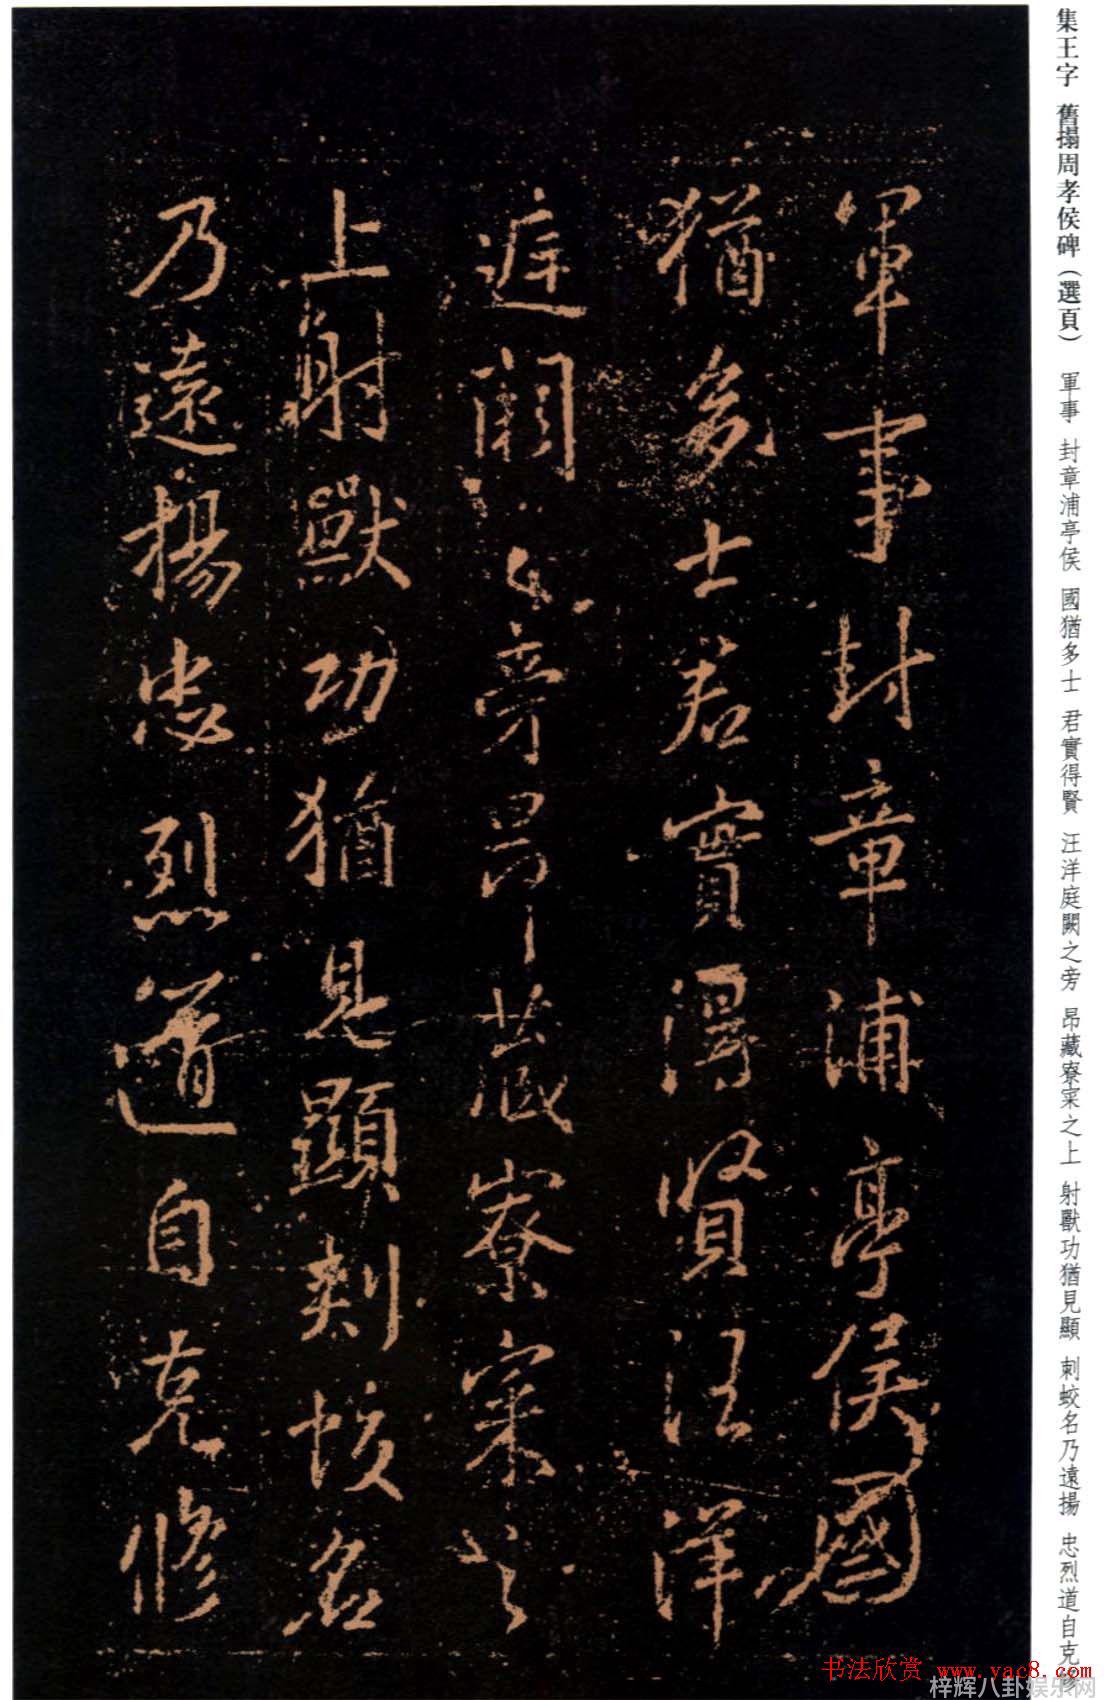 集王字 舊搨周孝侯碑（選頁） 軍事 封章浦亭侯 國猶多士 君實得賢 汪洋庭闕之旁 昂藏寮寀之上 射獸功猶見顯 刺蛟名乃遠揚 忠烈道自克修
軍事封章浦亭侯國
猶多士君實得賢汪洋
庭闕之旁昂藏寮寀之
上射獸功猶見顯刺蛟名
乃遠揚忠烈道自克修
书法欣赏 www.yac8.com
梓辉八卦娱乐网